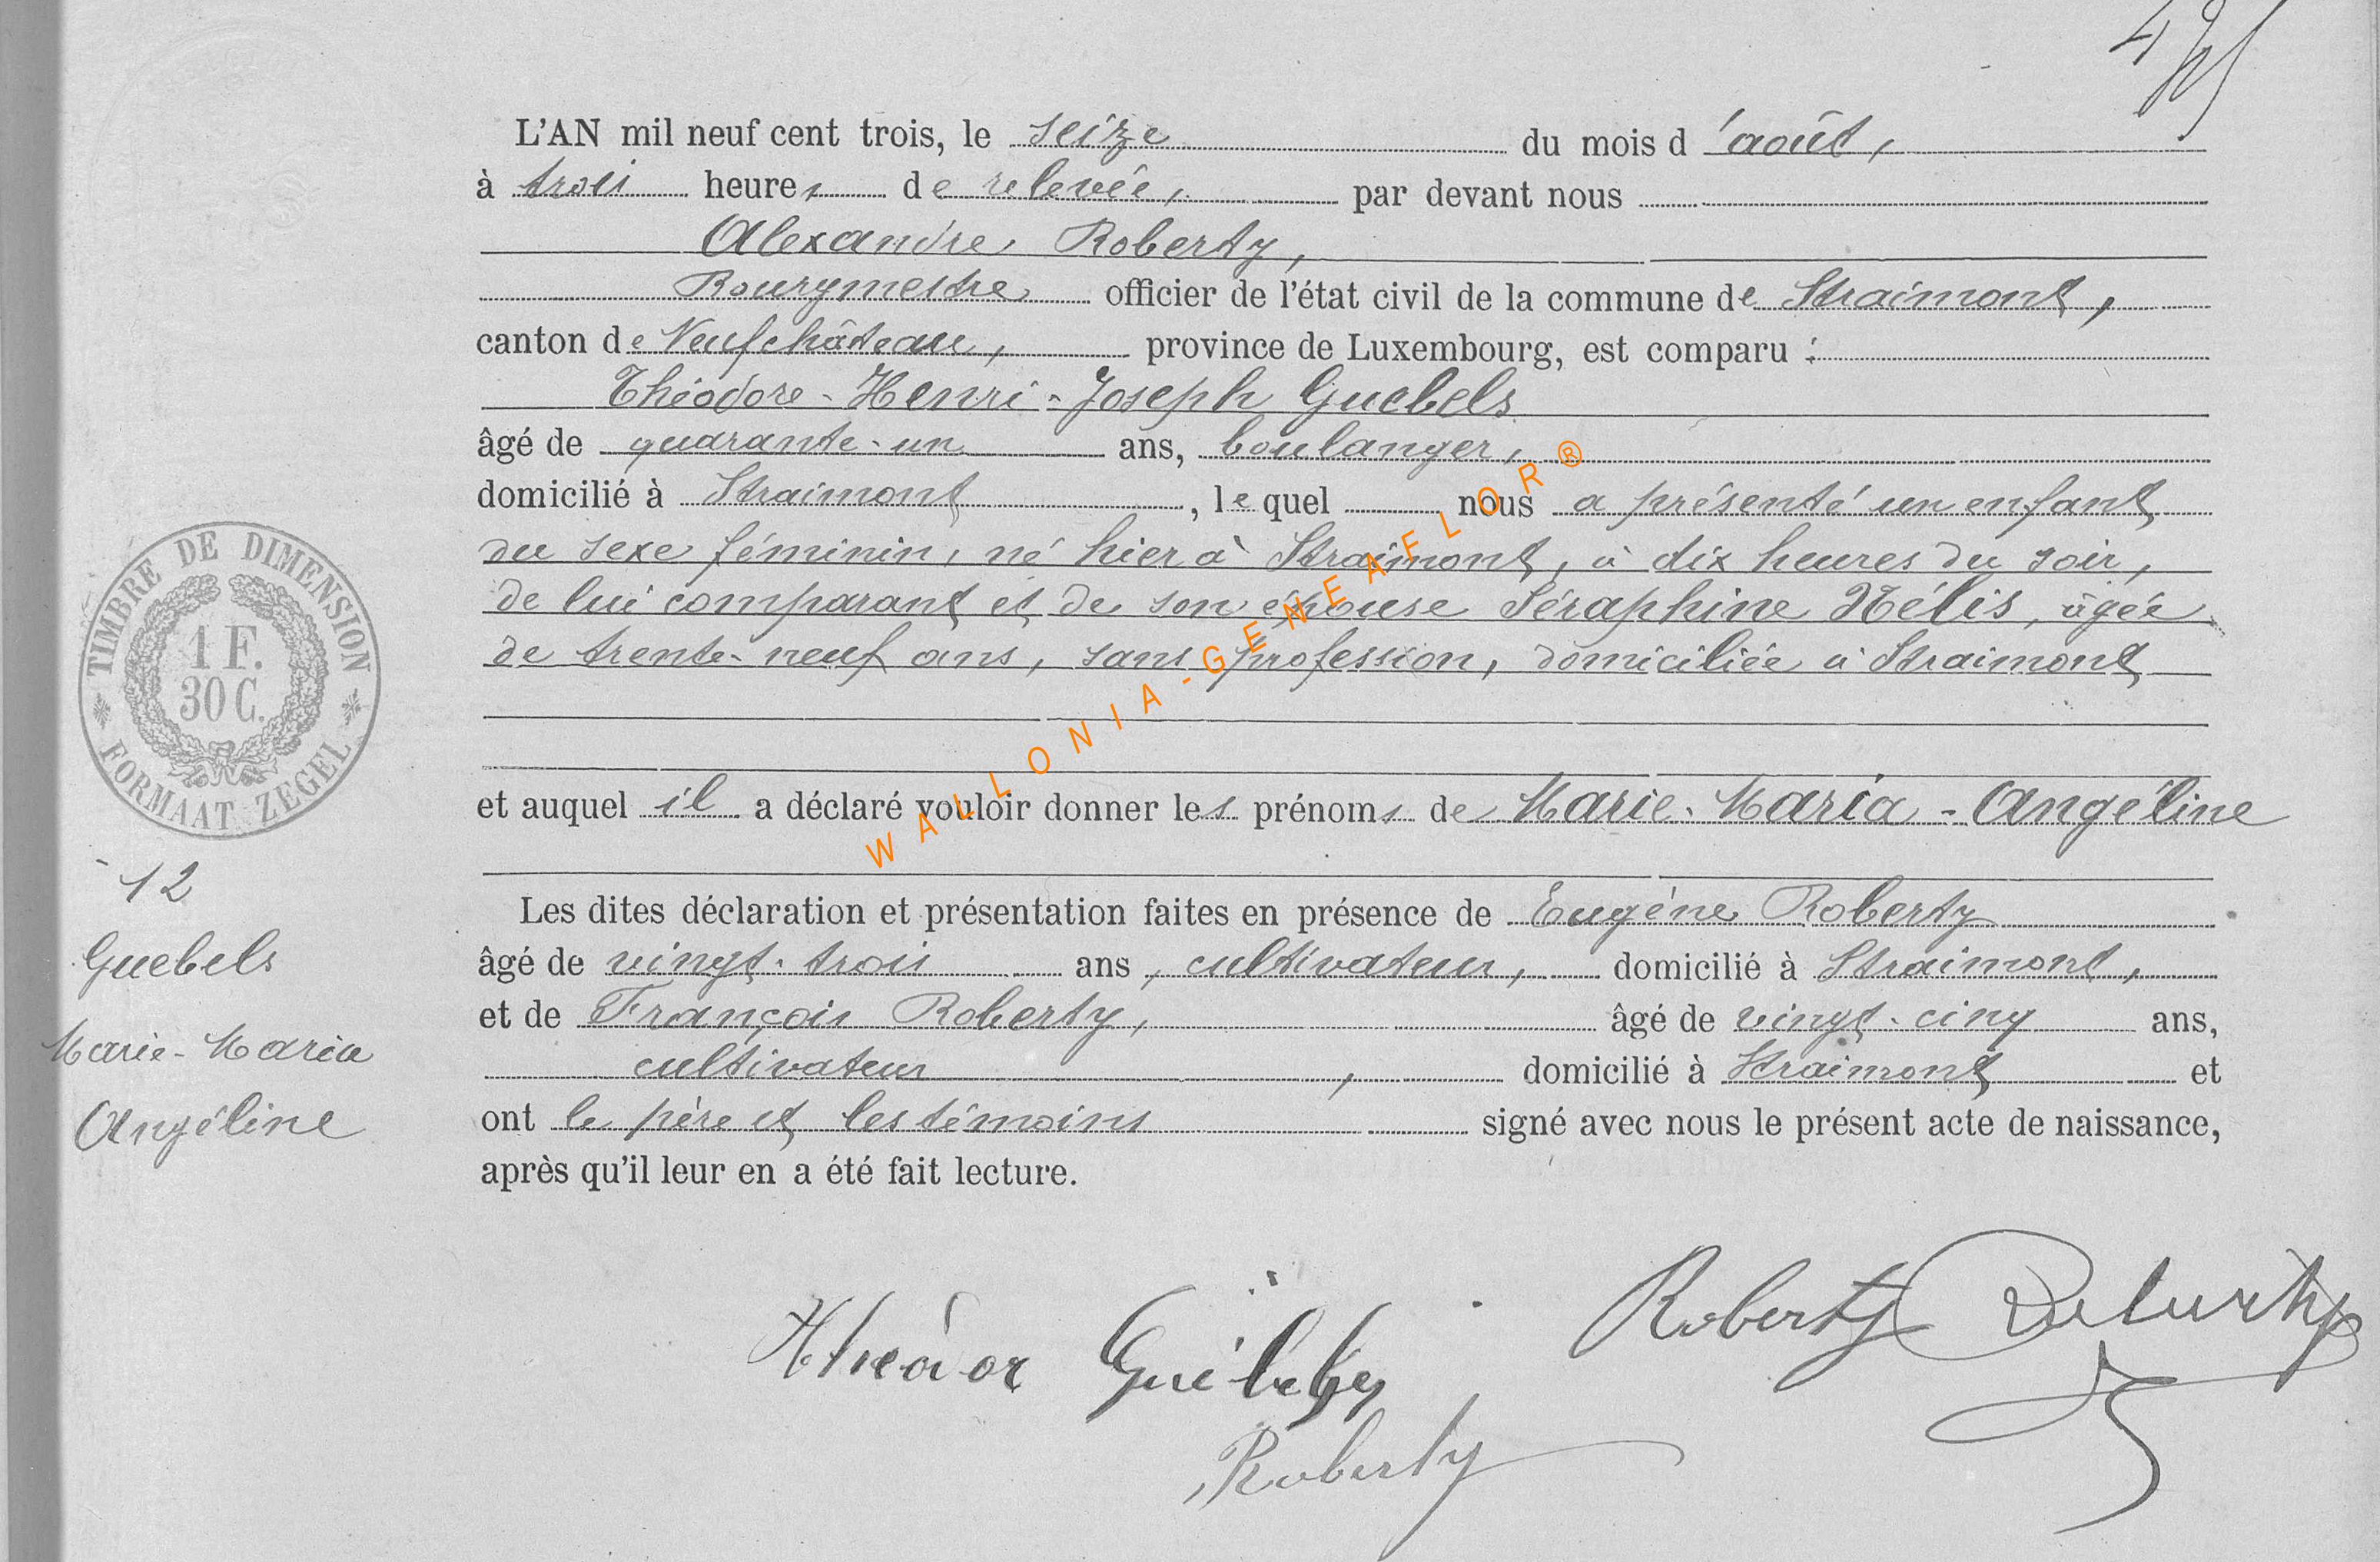 L'AN mil neuf cent trois, le seize du mois d'août,
à trois heures de relevée, par devant nous
Alexandre Roberty,
Bourgmestre officier de l'état civil de la commune de Straimont,
canton de Neufchâteau, province de Luxembourg, est comparu :
Théodore-Henri-Joseph Guebels
âgé de quarante-un ans, boulanger,
domicilié à Straimont, lequel nous a présenté un enfant
du sexe féminin, né hier à Straimont, à dix heures du soir,
de lui comparant et de son épouse Séraphine Nélis, âgée
de trente-neuf ans, sans profession, domiciliée à Straimont
et auquel il a déclaré vouloir donner les prénoms de Marie-Maria-Angéline
Les dites déclaration et présentation faites en présence de Eugène Roberty
âgé de vingt-trois ans, cultivateur, domicilié à Straimont,
et de François Roberty, âgé de vingt-cinq ans,
cultivateur, domicilié à Straimont et
ont le père et les témoins signé avec nous le présent acte de naissance,
après qu'il leur en a été fait lecture.
TIMBRE DE DIMENSION
1 F.
30 C.
FORMAAT ZEGEL
12
Guebels
Marie-Maria
Angéline
Roberty
Roberty
WALLONIA-GENEAFLOR®